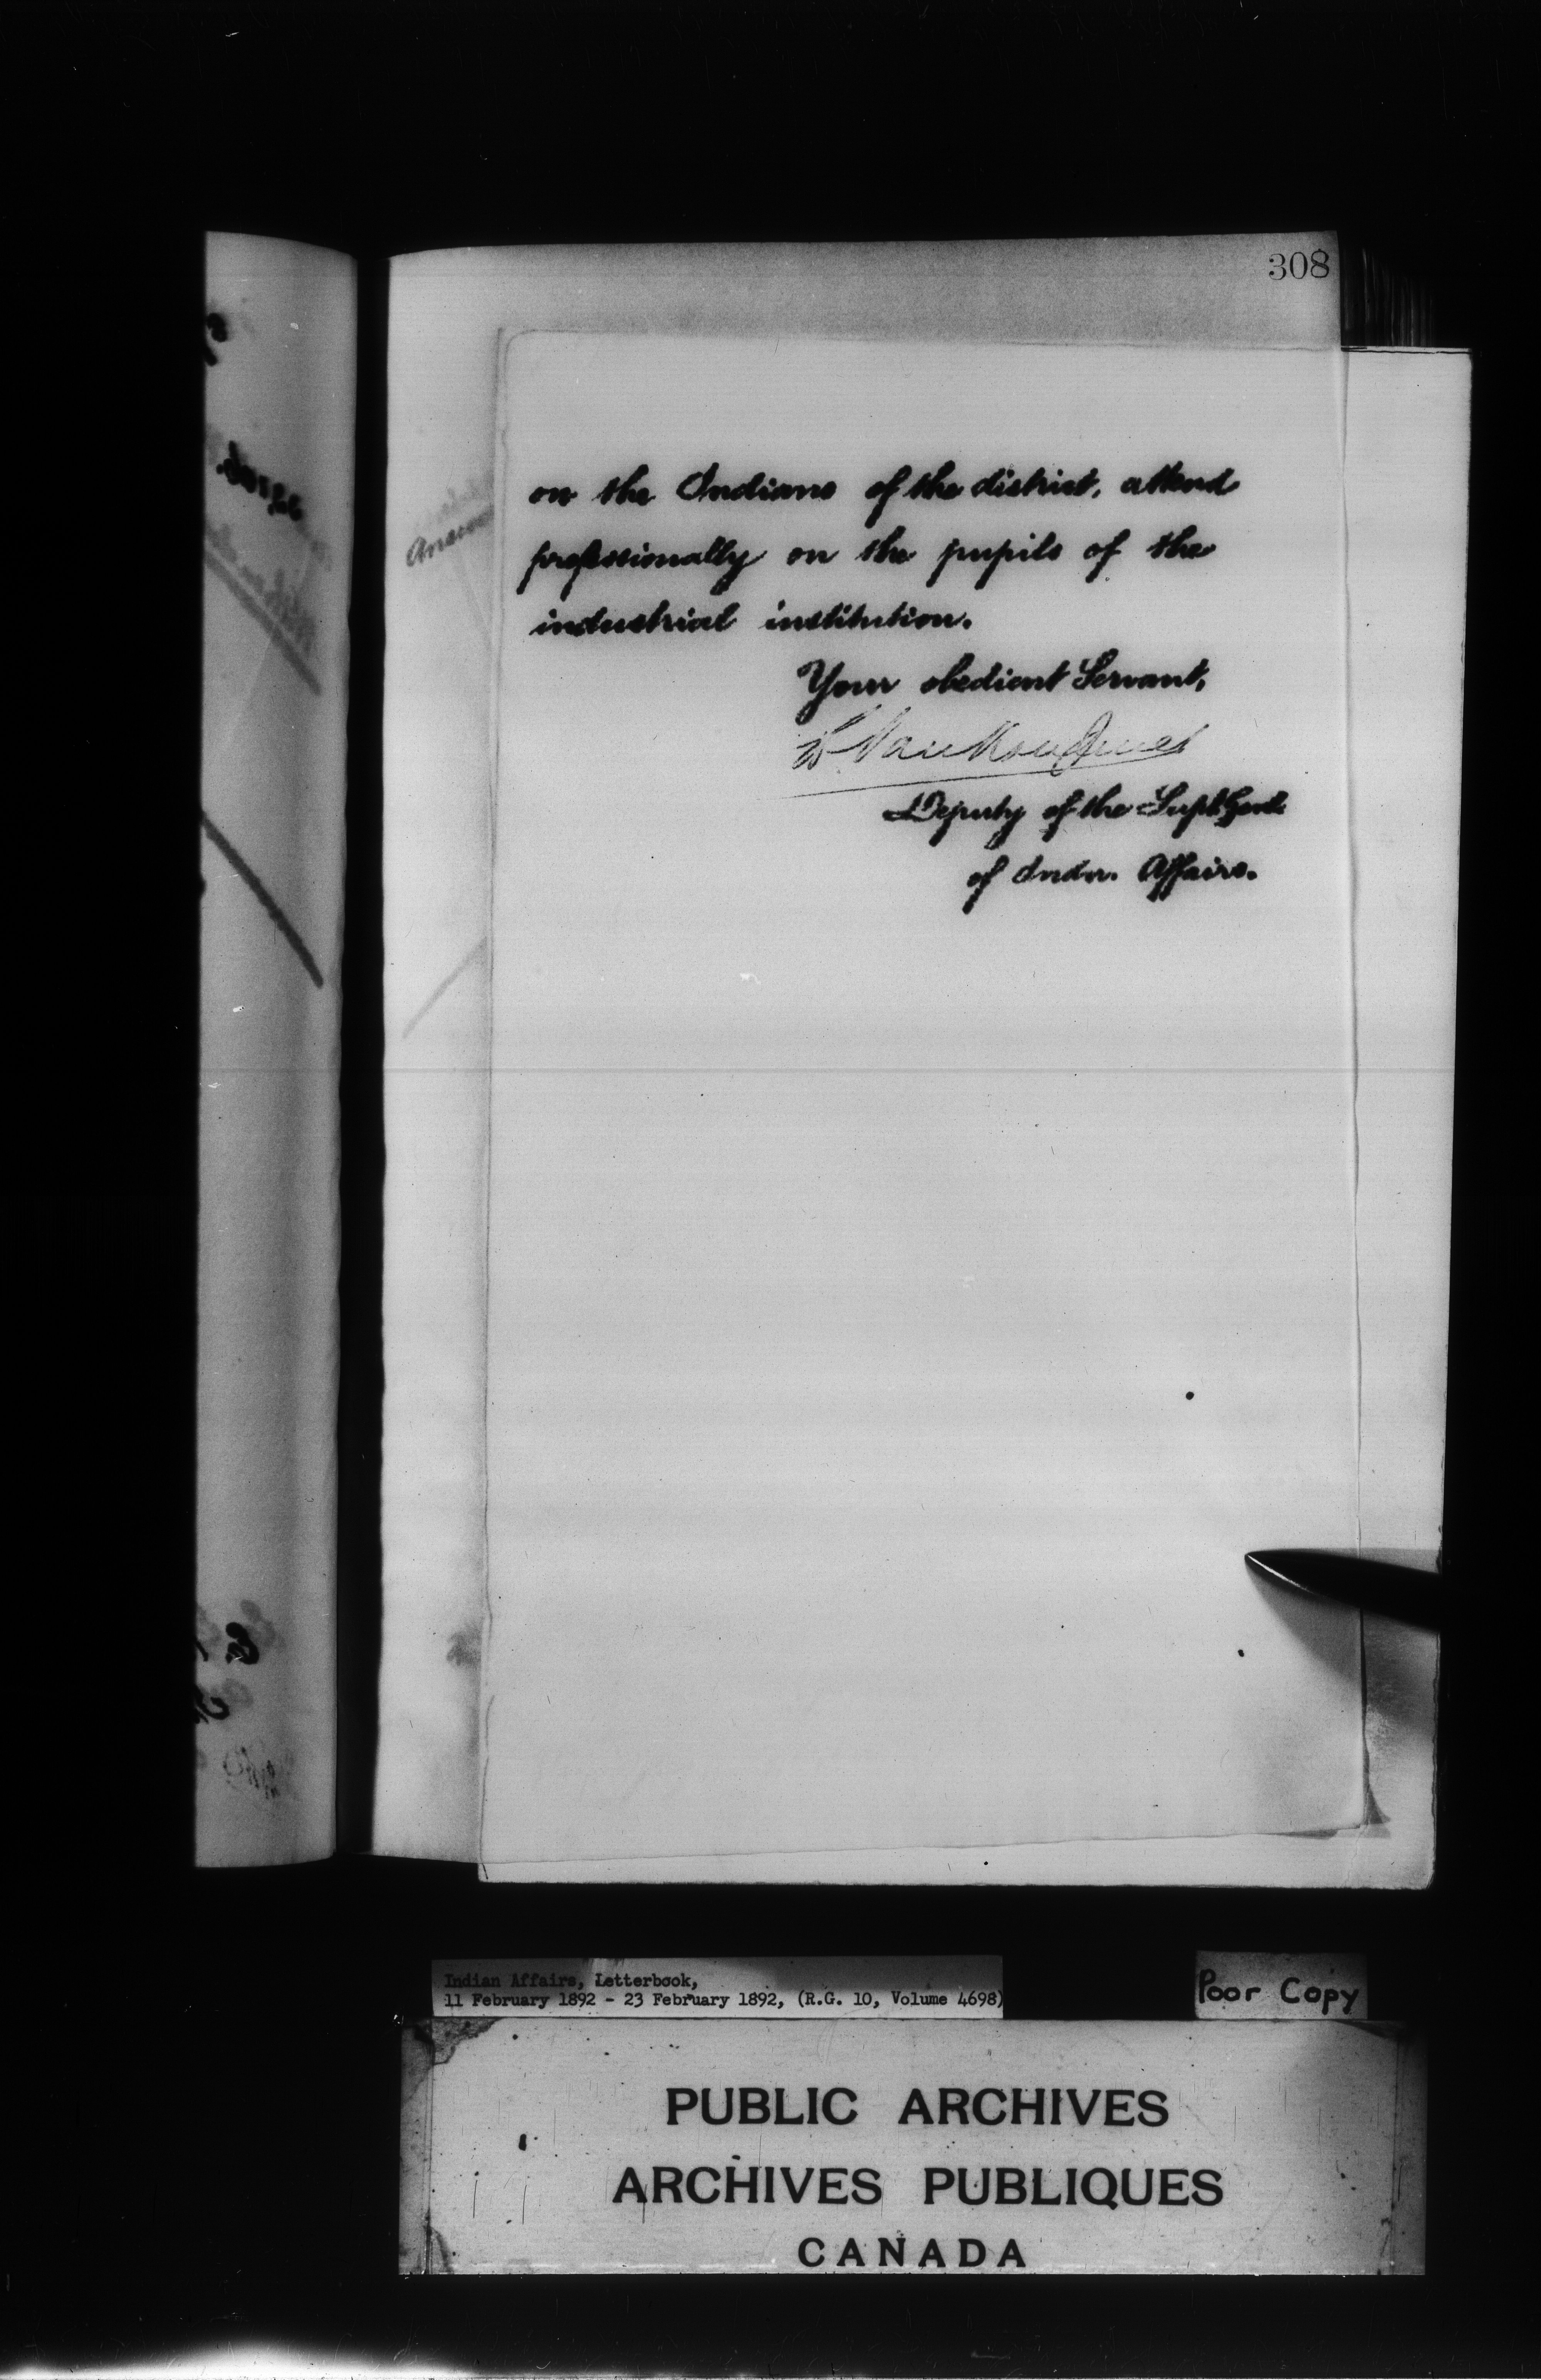 308
on the Indians of the district, attend
professionally on the pupils of the
industrial institution.
Your obedient Servant,
L. VanKoughnet
Deputy of the Supt Genl.
of Indn. Affairs.
Indian Affairs, Letterbook,
11 February 1892 - 23 February 1892, (R.G. 10, Volume 4698)
Poor Copy
PUBLIC ARCHIVES
ARCHIVES PUBLIQUES
CANADA